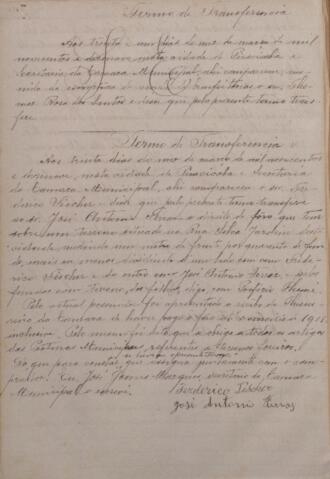 Termo de Transferencia
Aos trinta e um dias do mez de março de mil
novecentos e dezenove, nesta cidade de Piracicaba e
Secretaria da Camara Municipal, ahi compareceu, mu-
nido da escriptura de
Rosa dos Santos e disse que pelo presente termo trans-
fere
Termo de Transferencia
Aos trinta dias do mez de março de mil novecentos
e dezenove, nesta cidade de Piracicaba e Secretaria
da Camara Municipal, ahi compareceu o snr. Fre-
derico Fischer e disse que pelo presente termo transfere
ao sr. José Antonio o direito de fôro que tem
sobre um terreno situado na Rua Silva Jardim desta
cidade medindo metros de frente por quarenta de fun-
do, mais ou menos, dividindo de um lado com Fréde-
rico Fischer e de outro com José Antonio e pelos
fundos com
Pelo actual possuidor foi apresentado o recibo da Thesou-
raria da Camara de haver pago o fôro até o exercicio de
inclusive. Pelo mesmo foi dito que se obriga a todos os artigos
das Posturas Municipaes referente a terrenos foreiros.
Do que para constar que assigna juntamente com o com-
prador. Eu, José Gomes Marques, secretario da Camara
Municipal, o escrevi.
Frederico Fischer
José Antonio